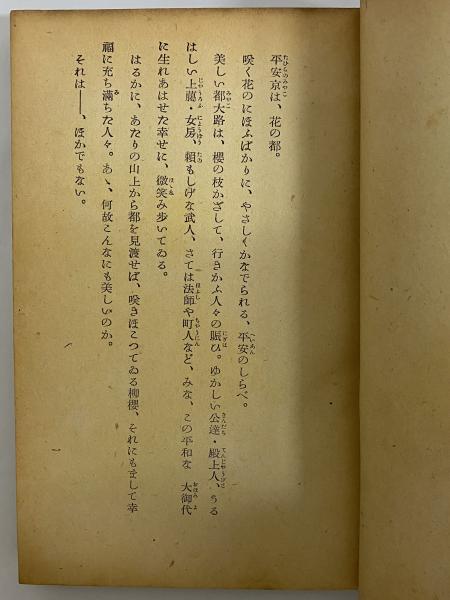 平安京は、花の都。
咲く花のにほふばかりに、やさしくかなでられる、平安のしらべ。
美しい都大路は、櫻の枝かざして、行きかふ人々の賑ひ。ゆかしい公達・殿上人、うる
はしい上﨟・女房、頼もしげな武人、さては法師や町人など、みな、この平和な 大御代
に生れあはせた幸せに、微笑み歩いてゐる。
はるかに、あたりの山上から都を見渡せば、咲きほこつてゐる柳櫻、それにもまして幸
福に充ち滿ちた人々。あゝ、何故こんなにも美しいのか。
それは――、ほかでもない。